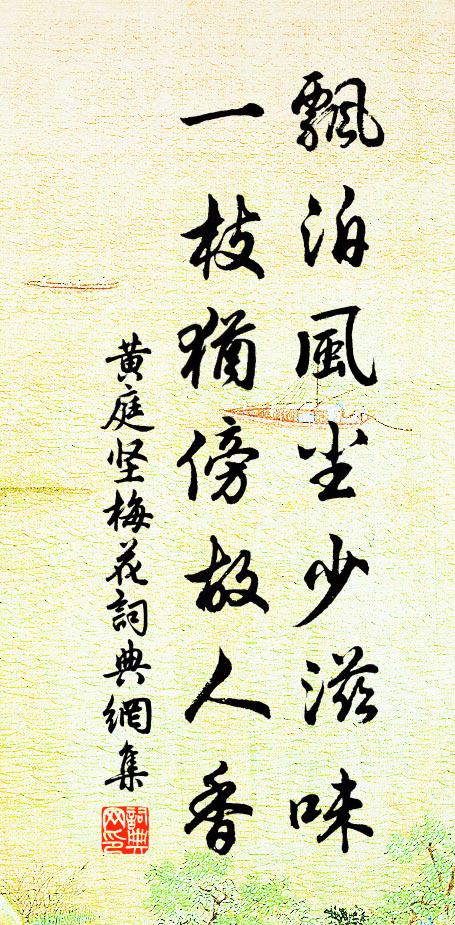 飄泊風尘少滋味
一枝猶傍故人香
黄庭坚梅花詞典網集
詞典网印